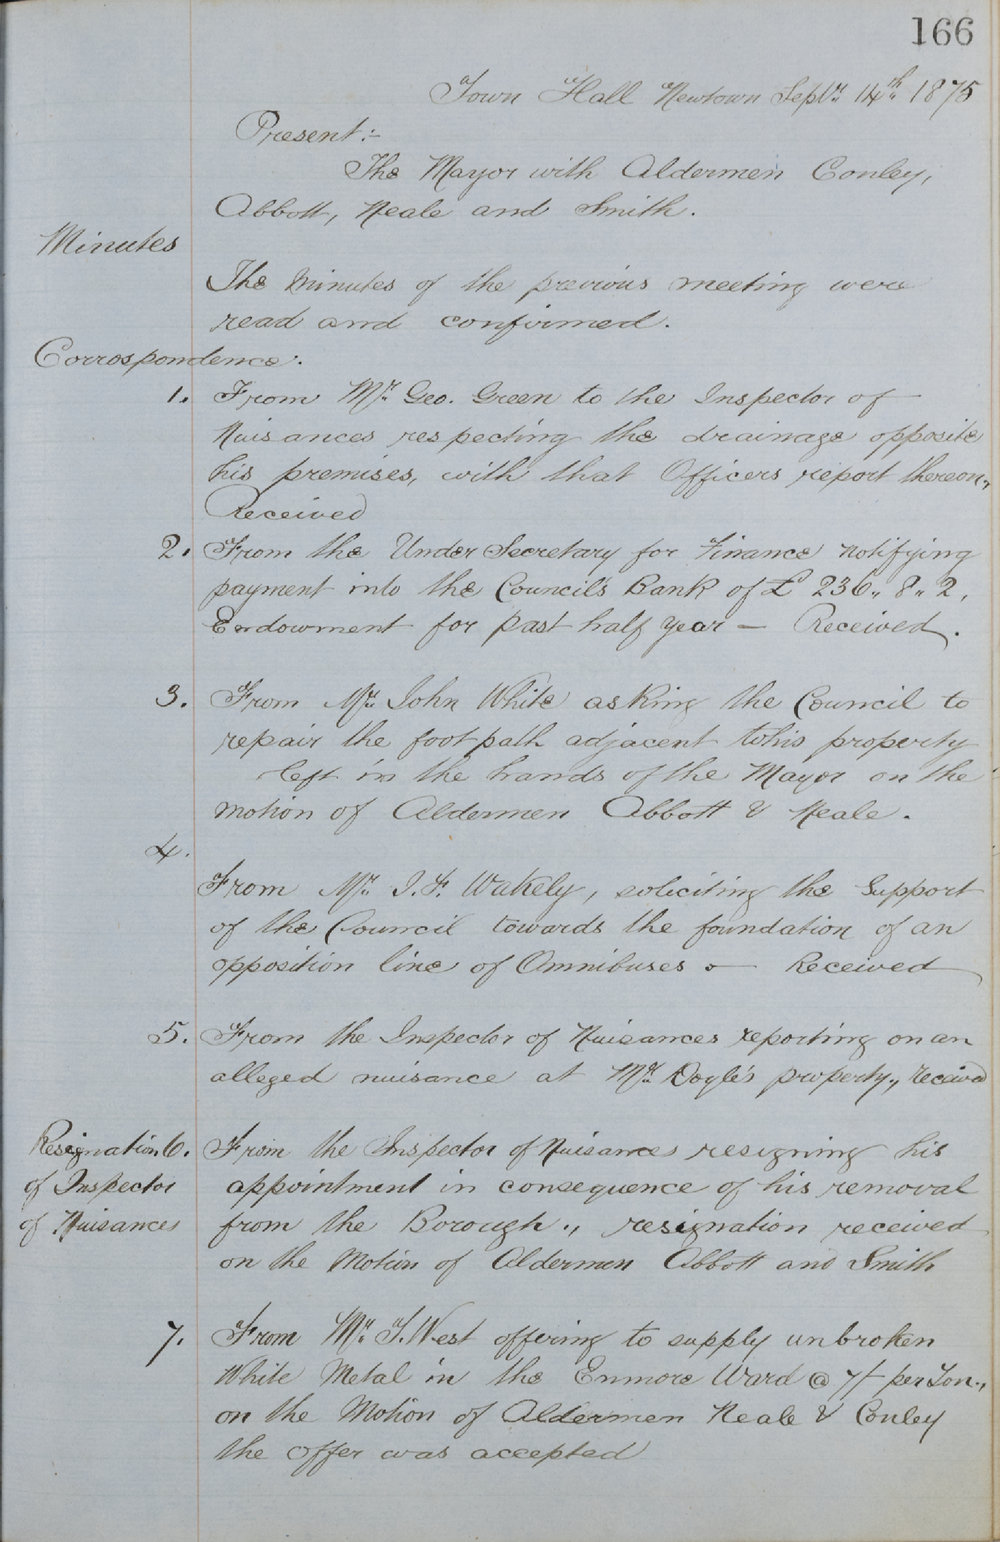 166
Town Hall Newtown Septr. 14th. 1875
Present:-
The Mayor with Aldermen Conley,
Abbott, Neale and Smith.
Minutes
The Minutes of the previous meeting were
read and confirmed.
Corrospondence:
1. From Mr. Geo. Green to the Inspector of
Nuisances respecting the drainage opposite
his premises, with that Officers report thereon.,
Received
2. From the Under Secretary for Finance notifying
payment into the Council's Bank of £ 236.. 8.. 2,
Endowment for past half year — Received.
3. From Mr. John White asking the Council to
repair the foot path adjacent to his property
left in the hands of the Mayor on the
motion of Aldermen Abbott & Neale.
4.
From Mr. J. F. Wakely, soliciting the Support
of the Council towards the foundation of an
opposition line of Omnibuses — Received
5. From the Inspector of Nuisances reporting on an
alleged nuisance at Mr. Doyle's property., received
Resignation 6. From the Inspector of Nuisances resigning his
of Inspector appointment in consequence of his removal
of Nuisances from the Borough., resignation received
on the Motion of Aldermen Abbott and Smith
7. From Mr. T. West offering to supply unbroken
White Metal in the Enmore Ward @ 7/- per Ton.,
on the Motion of Aldermen Neale & Conley
the offer was accepted